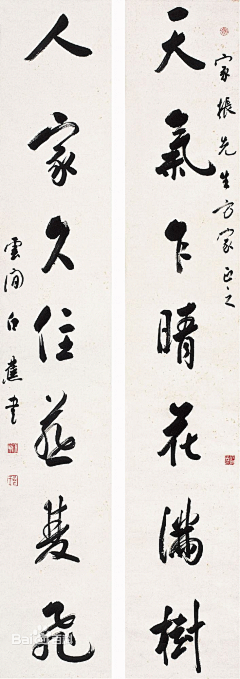 家振先生方家正之
天氣乍晴花滿樹
人家久住燕雙飛
雲間白蕉書
Bai百科